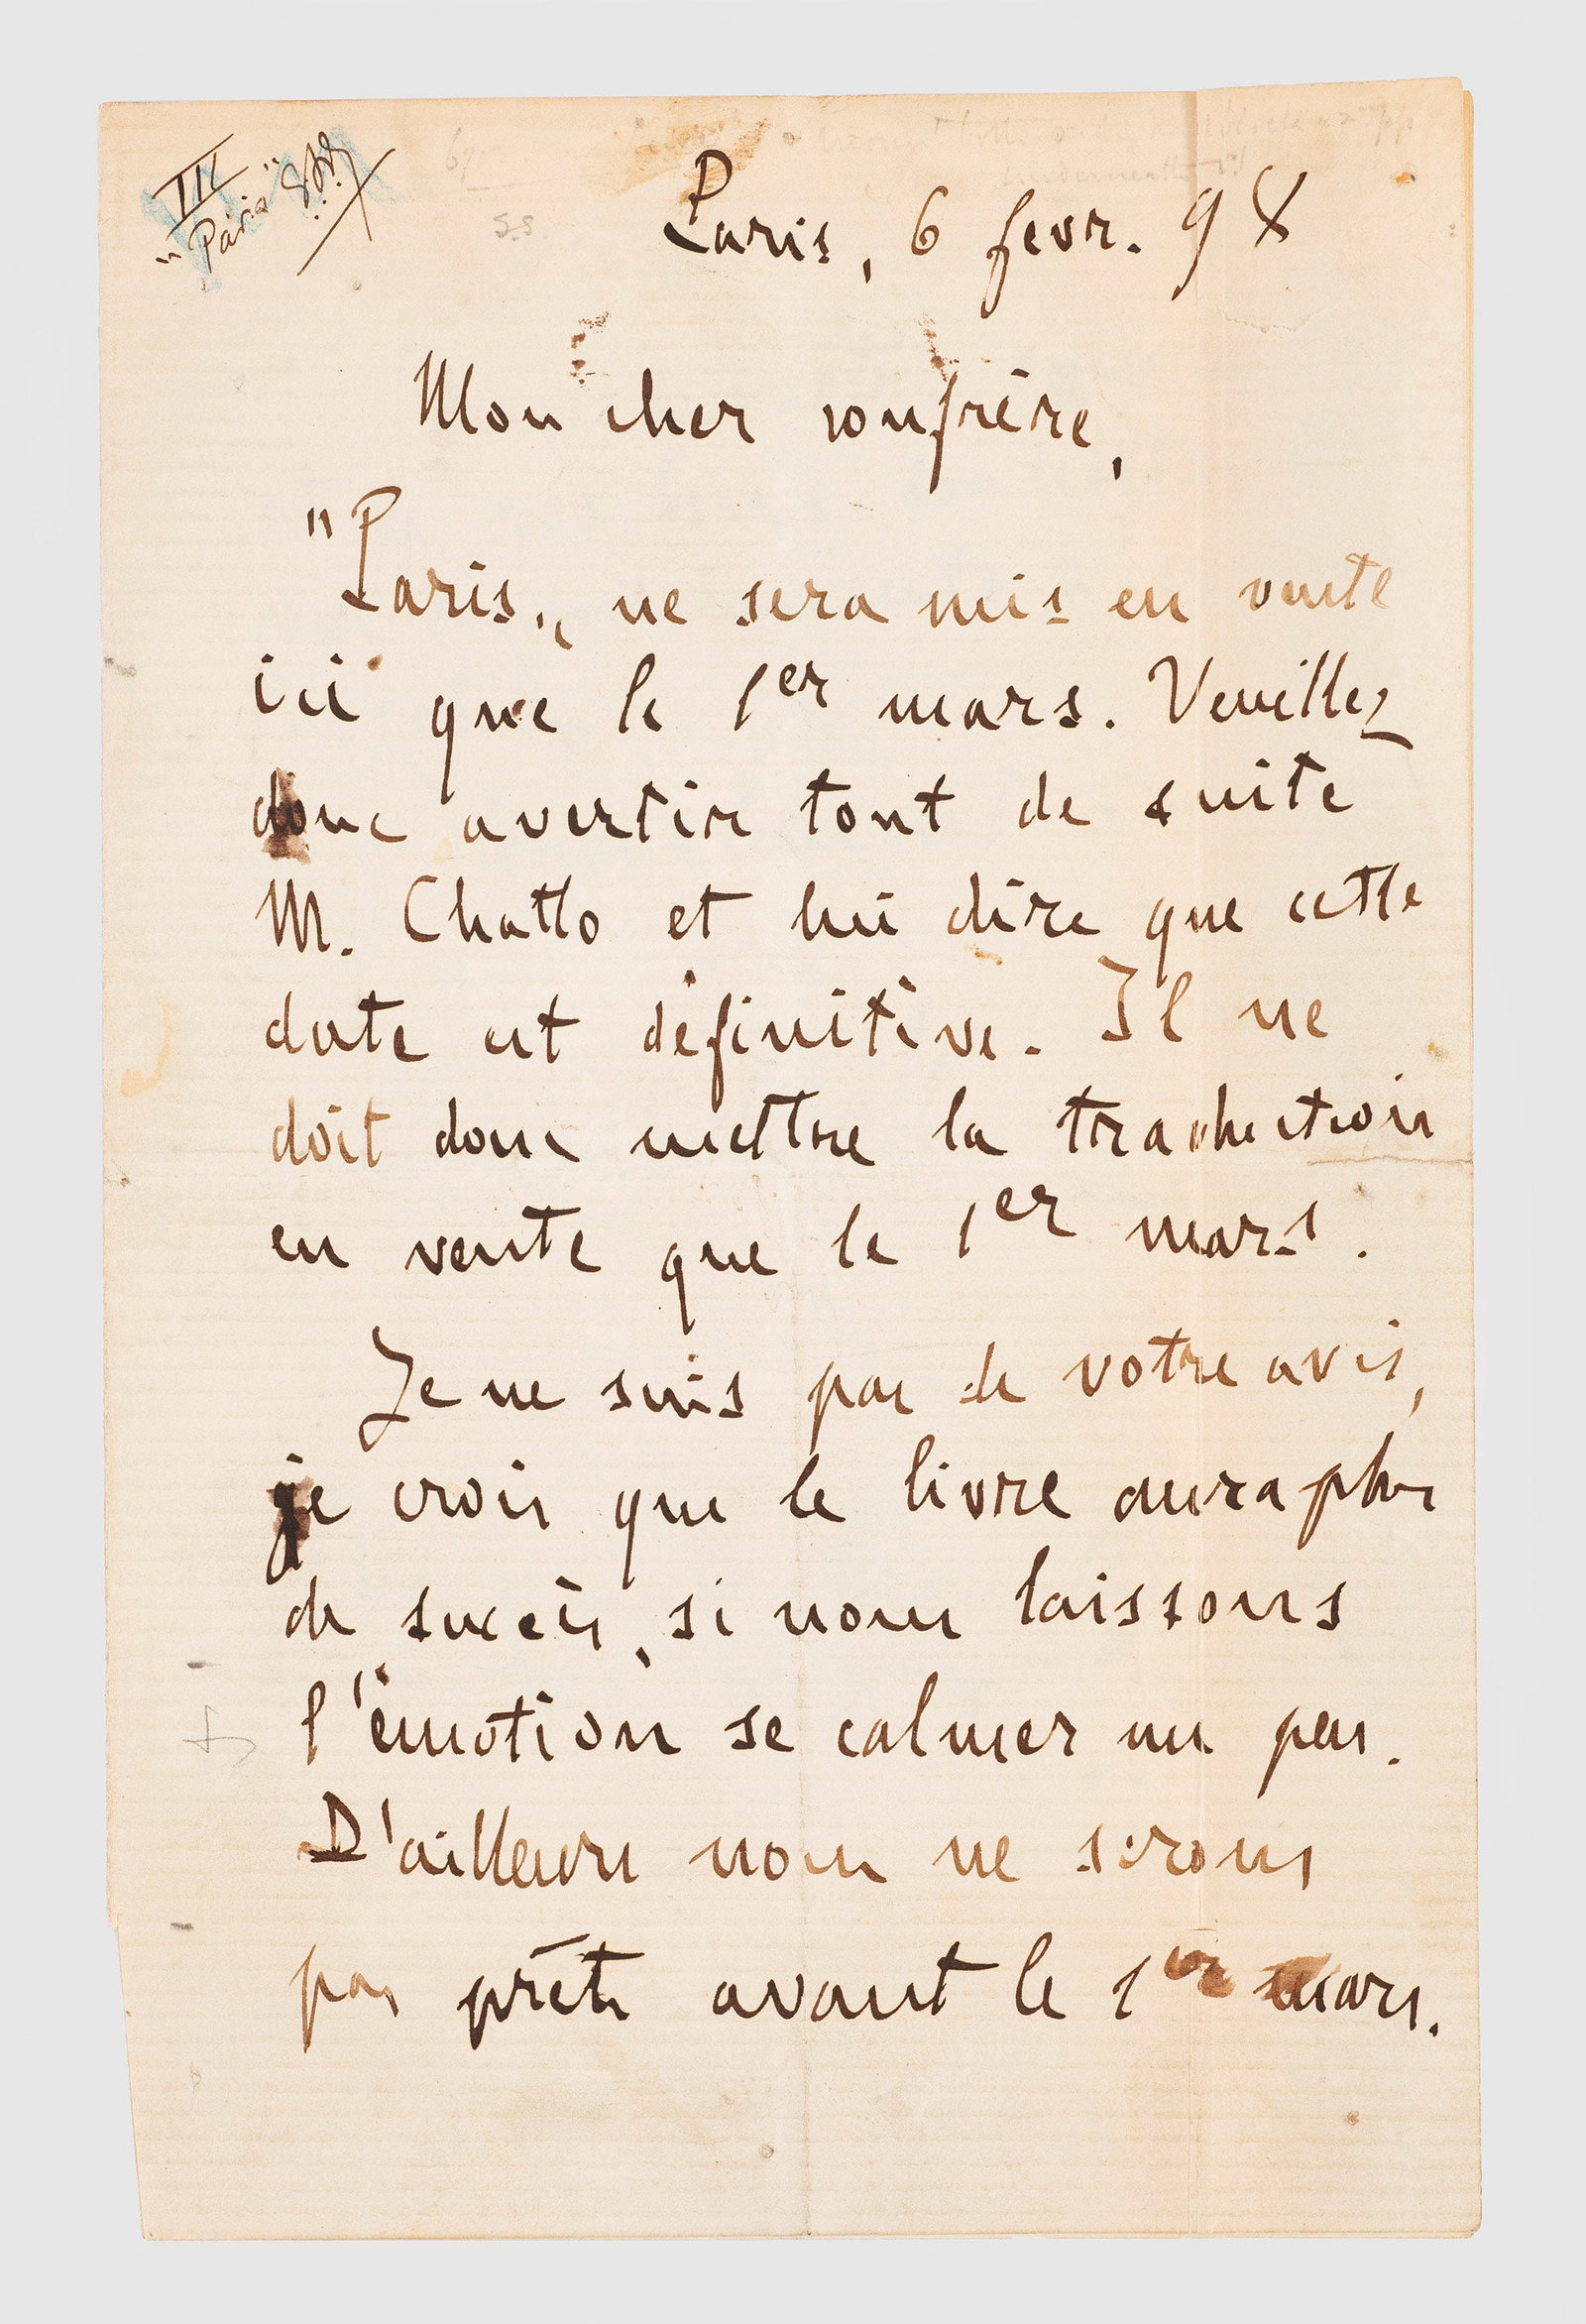 III
"Paris"
S.S.
Paris, 6 fevr. 98
Mon cher confrère,
"Paris" ne sera mis en vente
ici que le 1er mars. Veuillez
donc avertir tout de suite
M. Chatto et lui dire que cette
date est définitive. Il ne
doit donc mettre la traduction
en vente que le 1er mars.
Je ne suis pas de votre avis,
je crois que le livre aura plus
de succès, si nous laissons
l'émotion se calmer un peu.
D'ailleurs nous ne serons
pas prêts avant le 1er mars.